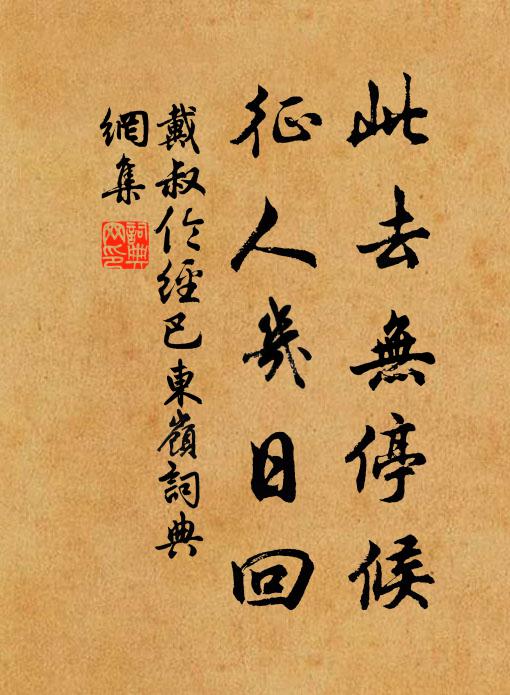 此去無停候
征人幾日回
戴叔伦經巴東嶺詞典
網集
詞典網印